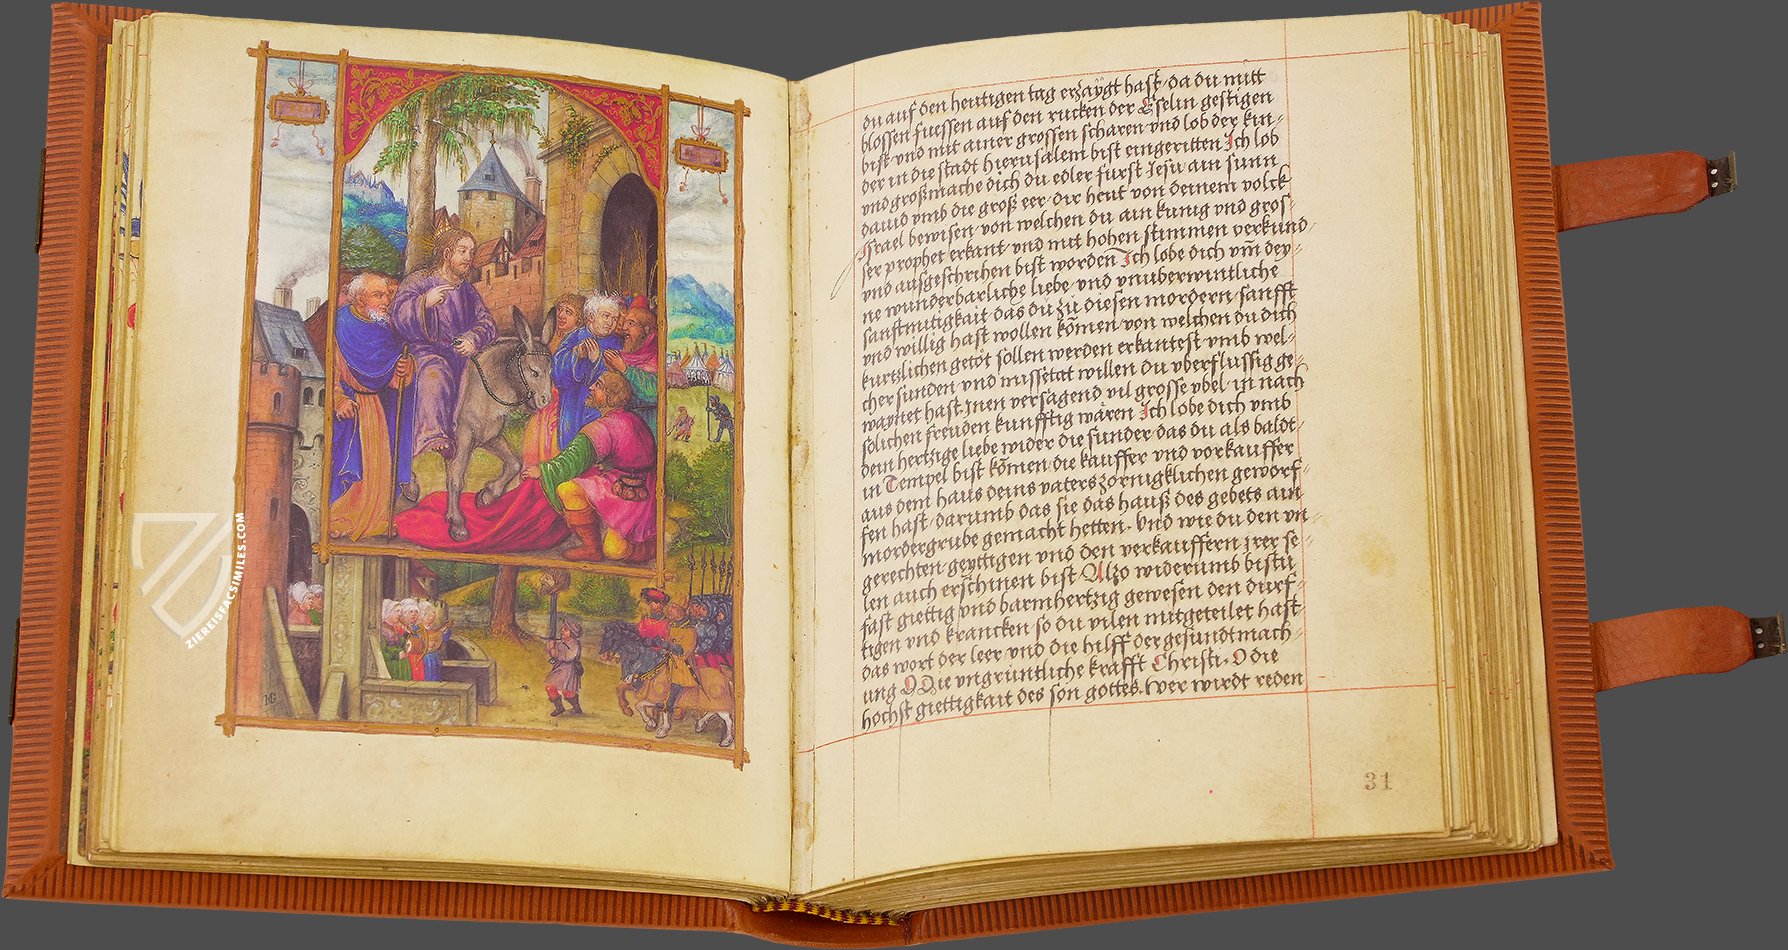 ZIEREISFACSIMILES.COM
NG
du auf den heutigen tag erzaygt hast, da du mitt
blossen fuessen auf den rucken der Eselin gestigen
bist vnd mit ainer grossen scharen vnd lob der kin=
der in die stadt hierusalem bist eingeritten Ich lob
vnd großmache dich du edler furst Jesu ain sunn
dauid vmb die groß eer dir heut von deinem volck
Israel bewisen von welchen du ain kunig vnd gros=
ser prophet erkant vnd mit hohen stimmen verkund
vnd ausgeschrihen bist worden Ich lobe dich vm̄ dey=
ne wunderbarliche liebe vnd vnuberwintliche
sanftmutigkait das du zu diesen mordern sanfft
vnd willig hast wollen kōmen von welchen du dich
kurtzlichen getot sollen werden erkantest vmb wel=
cher sunden vnd missetat willen du vberflussig ge=
waynet hast. Inen versagend vil grosse vbel in nach
solichen freuden kunfftig waren Ich lobe dich vmb
dein hertzige liebe wider die sunder das du als baldt=
in Tempel bist kōmen die kauffer vnd vorkauffer
aus dem haus deins vaters zornigklichen geworf=
fen hast darumb das sie das hauß des gebets ain
mordergrube gemacht hetten. Vnd wie du den vn=
gerechten geyttigen vnd den verkauffern irer se=
len auch erschinen bist Also widerumb bistu
fast giettig vnd barmhertzig gewesen den durf=
tigen vnd krancken so du vilen mitgeteilet hast
das wort der leer vnd die hilff der gesundtmach=
ung O Die vngruntliche krafft Christi. O die
hochst giettigkait des son gottes. Wer wirdt reden
31